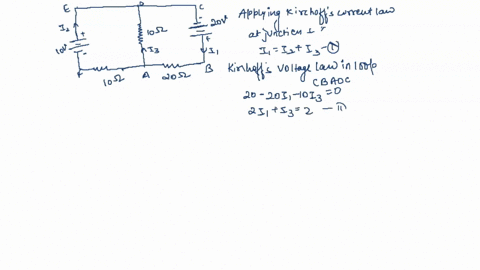 E D C
I₂ + 10V -
10Ω I₃
- 20V + I₁
F 10Ω A 20Ω B
Applying Kirchoff's current law
at junction
I₁ = I₂ + I₃ - Ⓘ
Kirchoff's Voltage law in loop
CBADC
20 - 20I₁ - 10I₃ = 0
2I₁ + I₃ = 2 - Ⓘⓘ